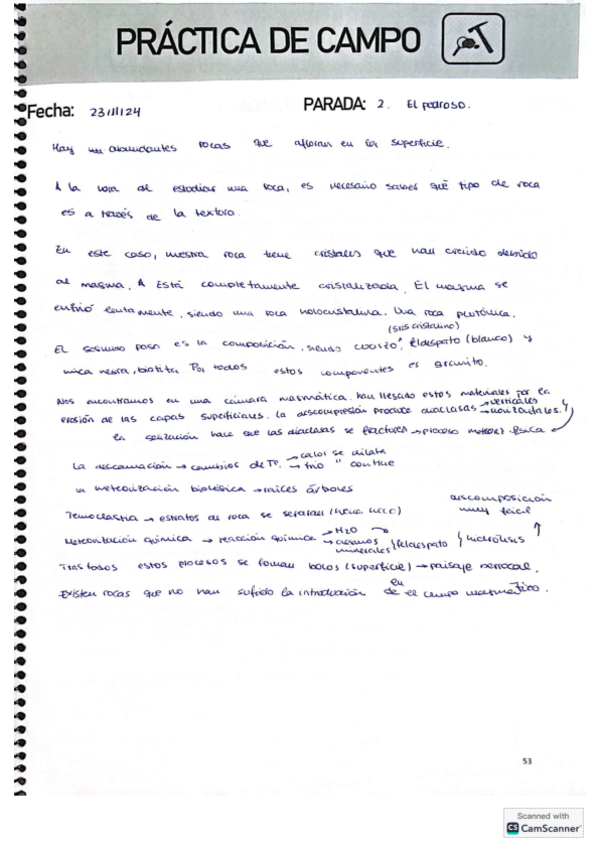 PRÁCTICA DE CAMPO
Fecha: 23/11/24 PARADA: 2. El pedroso.
Hay abundantes rocas que afloran en la superficie.
A la hora de estudiar una roca, es necesario saber qué tipo de roca
es a través de la textura.
En este caso, nuestra roca tiene cristales que han crecido debido
al magma. Está completamente cristalizada. El magma se
enfrió lentamente, siendo una roca holocristalina. Una roca plutónica.
(gris cristalino)
El segundo paso es la composición, siendo cuarzo, feldespato (blanco) y
mica negra, biotita. Por todos estos componentes es granito.
Nos encontramos en una cámara magmática, han llegado estos materiales por la
erosión de las capas superficiales. La descompresión produce diaclasas → verticales
→ horizontales.
la gelización hace que las diaclasas se fracturen → proceso meteor. física
La descamación → cambios de Tª. → calor se dilata
→ frío " contrae
La meteorización biológica → raíces árboles
Termoclastia → estratos de roca se separan
descomposición
muy fácil
Meteorización química → reacción química → H2O
→ algunos minerales } feldespato } hidrólisis
Tras todos estos procesos se forman bolos (superficie) → paisaje berrocal.
Existen rocas que no han sufrido la introducción de en el campo magmático.
53
Scanned with
CS CamScanner